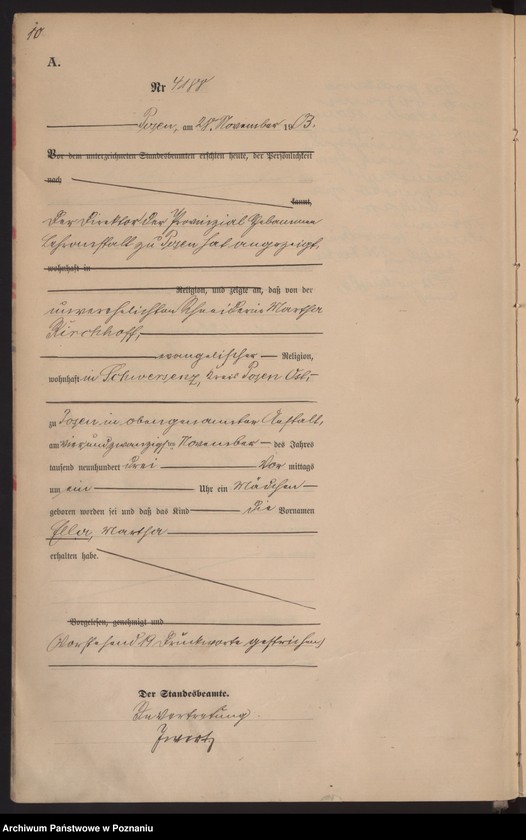 10.
A.
Nr 4188
Posen, am 28. November 1903.
Vor dem unterzeichneten Standesbeamten erschien heute, der Persönlichkeit
nach
kannt,
Der Direktor der Provinzial Hebammen
Lehranstalt zu Posen hat angezeigt,
wohnhaft in
Religion, und zeigte an, daß von der
unverehelichten Schneiderin Martha
Kirchhoff,
evangelischer Religion,
wohnhaft in Schwersenz, Kreis Posen Ost,
zu Posen in obengenannter Anstalt,
am vierundzwanzigsten November des Jahres
tausend neunhundert drei Vor mittags
um ein Uhr ein Mädchen
geboren worden sei und daß das Kind die Vornamen
Ella, Martha
erhalten habe.
Vorgelesen, genehmigt und
(Vorstehend 19 Druckworte gestrichen)
Der Standesbeamte.
In Vertretung.
Archiwum Państwowe w Poznaniu